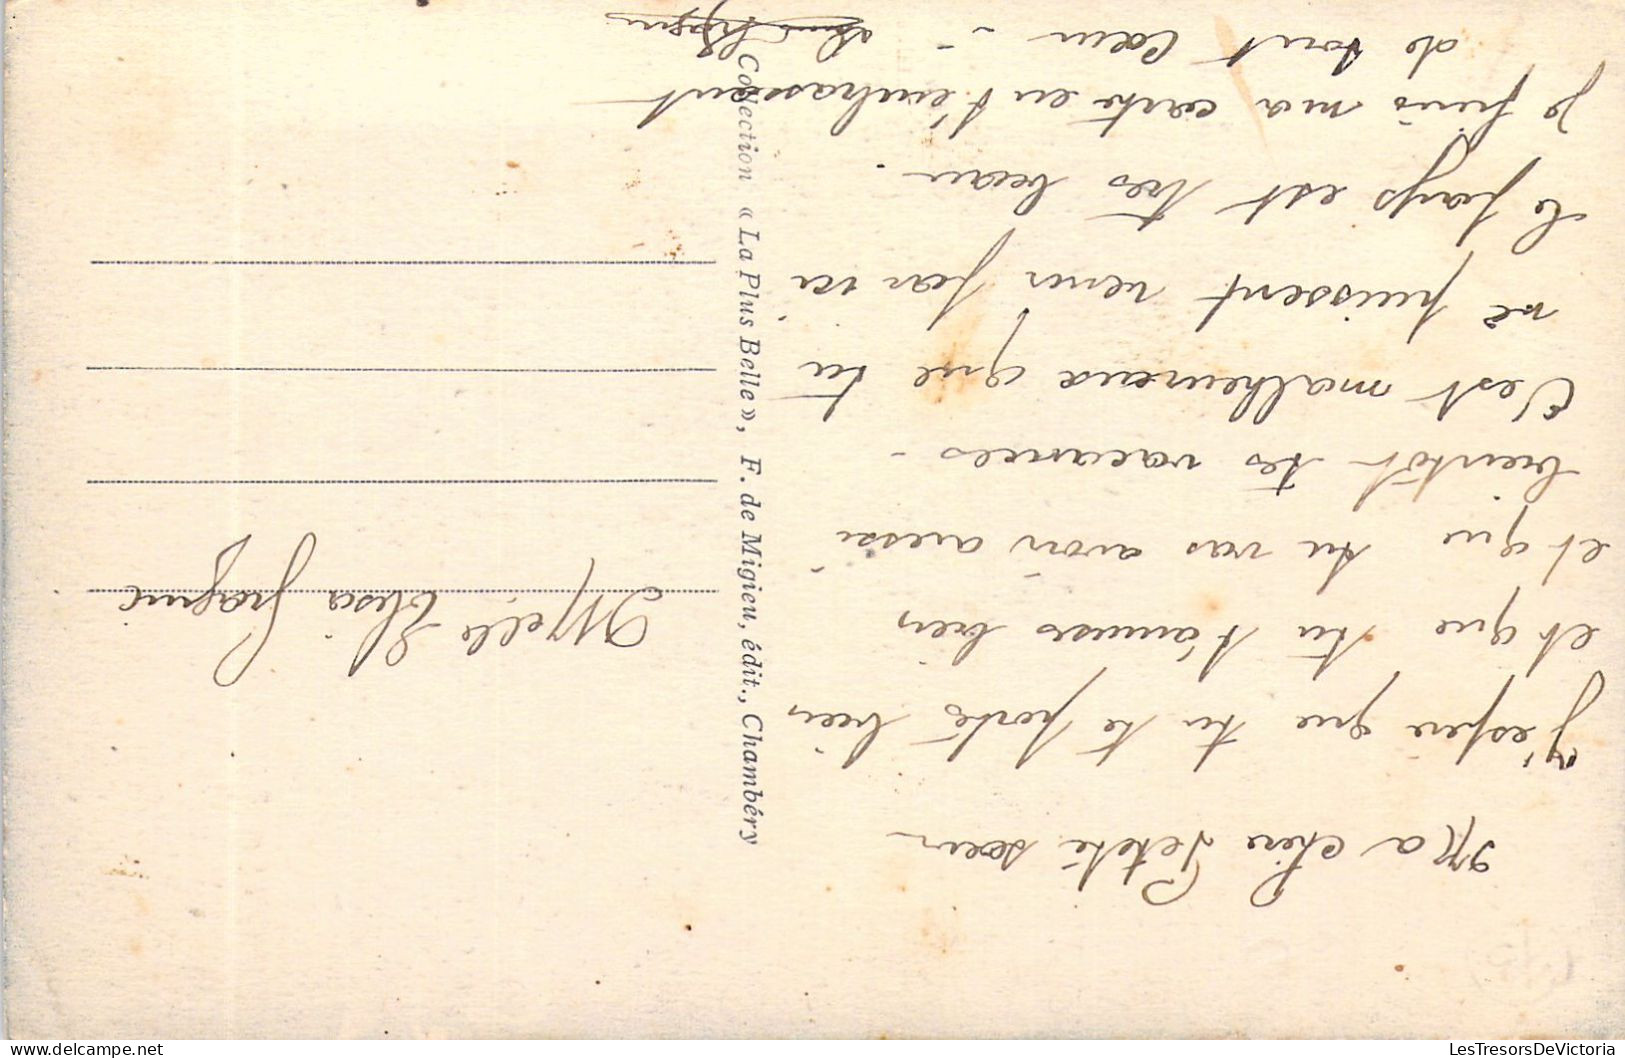 Ma chère Petite soeur
J'espère que tu te porte bien
et que tu t'amuses bien
et que tu vas avoir aussi
bientôt tes vacances -
C'est malheureux que tu
ne puissent venir par ici
Le pays est très beau.
Je finis ma carte en t'embrassant
de tout Coeur -
Melle Elisa
Collection « La Plus Belle », F. de Migieu, édit., Chambéry
LesTresorsDeVictoria